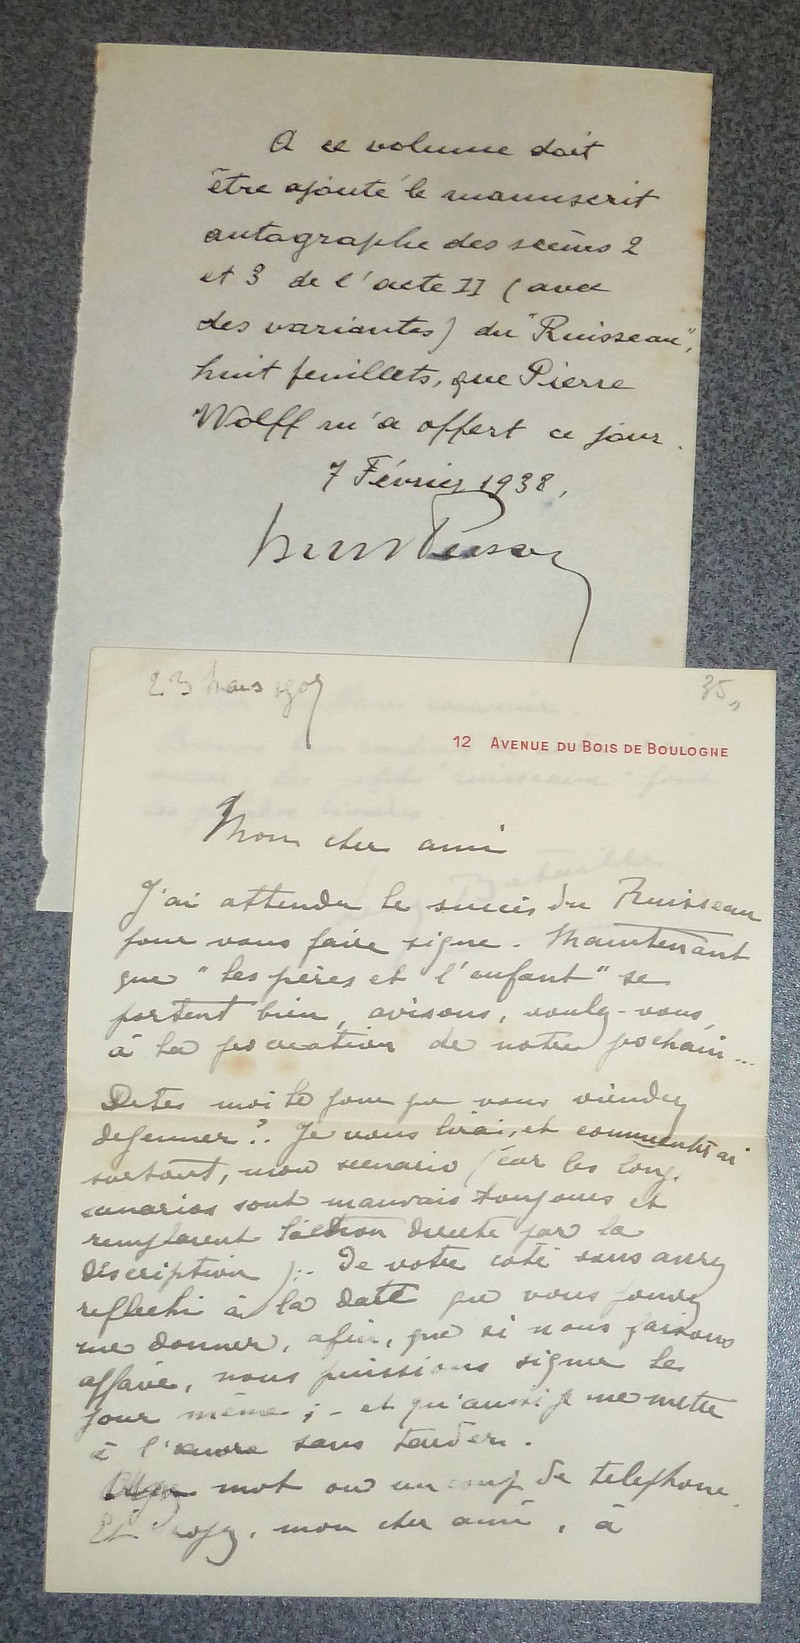 A ce volume doit
être ajouté le manuscrit
autographe des scènes 2
et 3 de l'acte II (avec
des variantes) du "Ruisseau",
huit feuillets, que Pierre
Wolff m'a offert ce jour.
7 Février 1938,
23 mars 1907
35,
12 AVENUE DU BOIS DE BOULOGNE
Mon cher ami
J'ai attendu le succès du Ruisseau
pour vous faire signe. Maintenant
que "les pères et l'enfant" se
portent bien, avisons, voulez-vous,
à la procréation de notre prochain...
Dites moi le jour où vous viendrez
déjeuner? Je vous lirai, et commenterai
surtout, mon scenario (car les longs
scenarios sont mauvais toujours et
remplacent l'action directe par la
déscription). De votre coté vous aurez
reflechi à la date que vous pouvez
me donner, afin, que si nous faisons
affaire, nous puissions signer le
jour même; - et qu'aussi je me mette
à l'œuvre sans tarder.
mot ou un coup de telephone.
Et croyez, mon cher ami, à